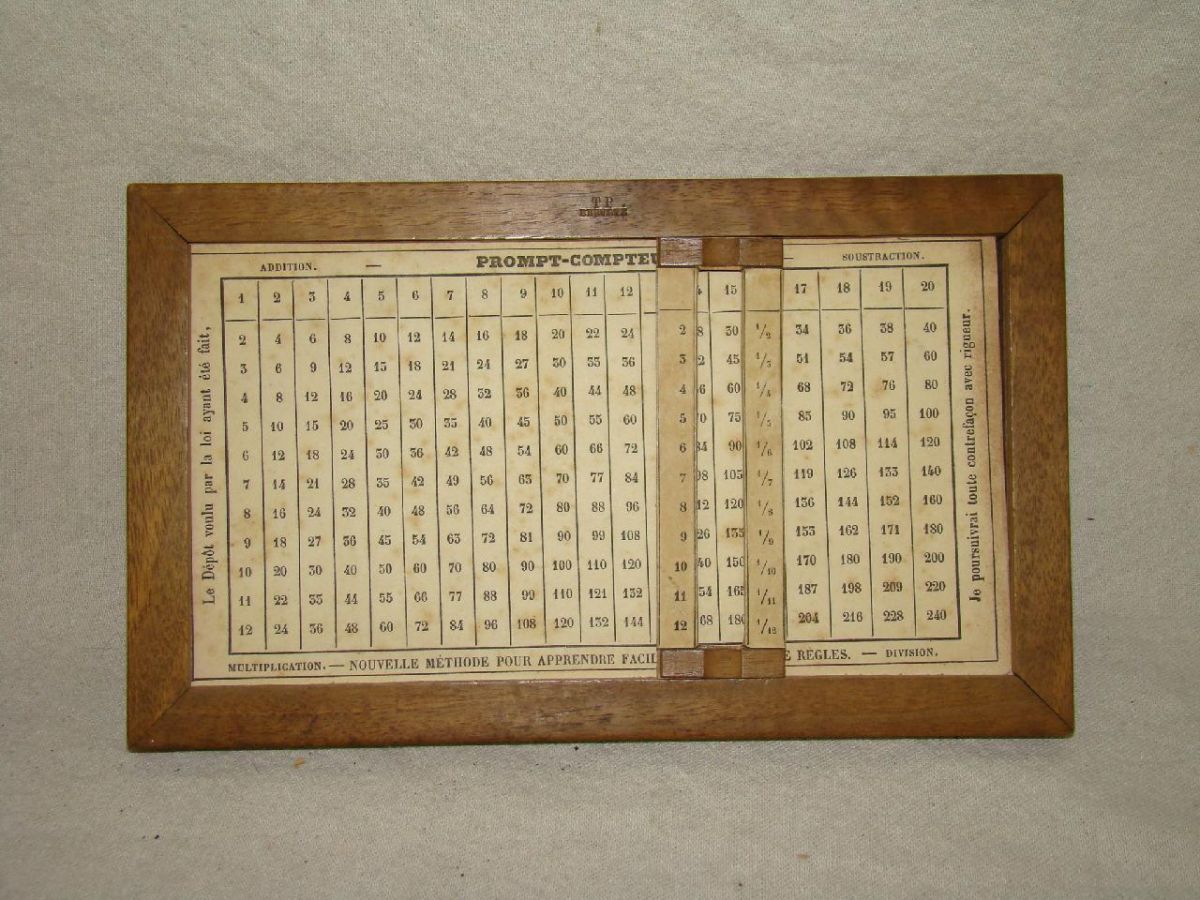 T P
ADDITION. — PROMPT-COMPTEU — SOUSTRACTION.
1 2 3 4 5 6 7 8 9 10 11 12 4 15 17 18 19 20
2 4 6 8 10 12 14 16 18 20 22 24 2 8 30 1/2 34 36 38 40
3 6 9 12 15 18 21 24 27 30 33 36 3 2 45 1/3 51 54 57 60
4 8 12 16 20 24 28 32 36 40 44 48 4 6 60 1/4 68 72 76 80
5 10 15 20 25 30 35 40 45 50 55 60 5 0 75 1/5 85 90 95 100
6 12 18 24 30 36 42 48 54 60 66 72 6 84 90 1/6 102 108 114 120
7 14 21 28 35 42 49 56 63 70 77 84 7 98 105 1/7 119 126 133 140
8 16 24 32 40 48 56 64 72 80 88 96 8 12 120 1/8 136 144 152 160
9 18 27 36 45 54 63 72 81 90 99 108 9 26 135 1/9 153 162 171 180
10 20 30 40 50 60 70 80 90 100 110 120 10 40 150 1/10 170 180 190 200
11 22 33 44 55 66 77 88 99 110 121 132 11 54 165 1/11 187 198 209 220
12 24 36 48 60 72 84 96 108 120 132 144 12 68 180 1/12 204 216 228 240
MULTIPLICATION. — NOUVELLE MÉTHODE POUR APPRENDRE FACIL E RÈGLES. — DIVISION.
Le Dépôt voulu par la loi ayant été fait,
Je poursuivrai toute contrefaçon avec rigueur.